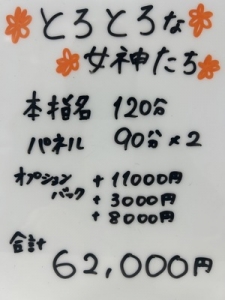 とろとろな
女神たち
本指名 120分
パネル 90分×2
オプションバック +11000円
+3000円
+8000円
合計
62,000円